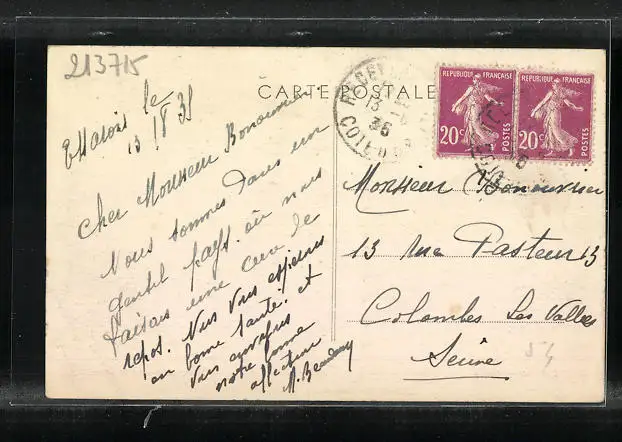 213715
CARTE POSTALE
REPUBLIQUE FRANÇAISE
20c
POSTES
REPUBLIQUE FRANÇAISE
20c
POSTES
Cher Monsieur Bonouvrier
Nous sommes dans un
gentil pays. où nous
faisons une cure de
repos. Nous Vous espérons
en bonne santé. et
Vous envoyons
notre bonne
affection
Monsieur Bonouvrier
13 rue Pasteur 13
Colombes Les Vallées
Seine